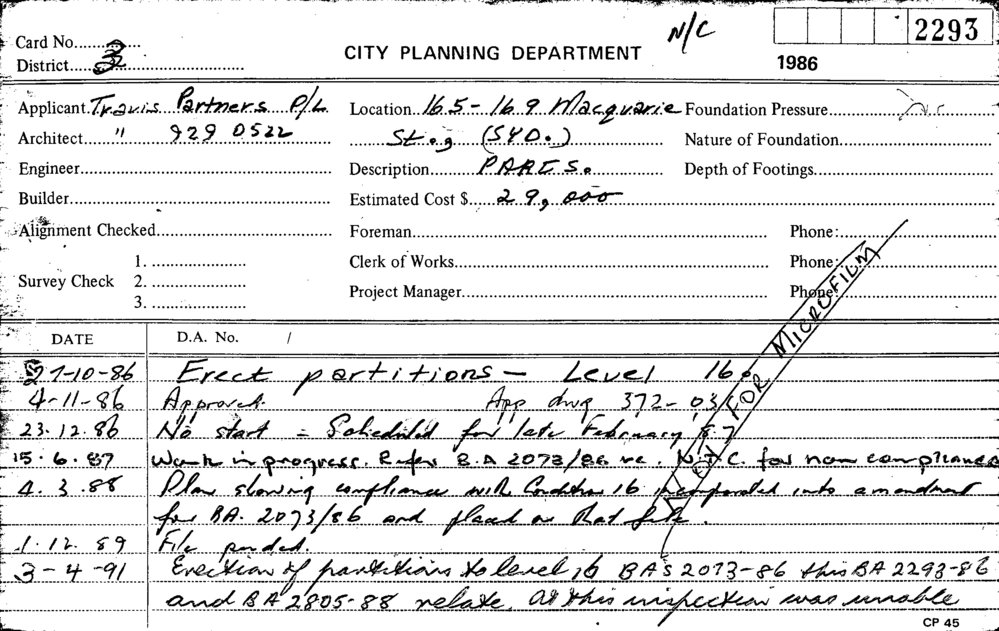 N/C
2293
Card No. 3
CITY PLANNING DEPARTMENT
District 3
1986
Applicant Travis Partners P/L Location 165-169 Macquarie Foundation Pressure
Architect " 929 0522 St., (SYD.) Nature of Foundation
Engineer Description PARTS. Depth of Footings
Builder Estimated Cost $ 29,000
Alignment Checked Foreman Phone:
1. Clerk of Works Phone:
Survey Check 2.
3. Project Manager Phone:
FOR MICROFILM
DATE D.A. No. /
27-10-86 Erect partitions - Level 16.
4-11-86 Approved. App dwg 372-03/
23.12.86 No start - Scheduled for late February 87
15.6.87 Work in progress. Refer B.A 2073/86 re. N.O.C. for non compliance
4.3.88 Plan showing compliance with Condition 16 incorporated into amendment
for BA. 2073/86 and placed on that file.
1.12.89 File
3-4-91 Erection of partitions to level 16 BA's 2073-86 this BA 2293-86
and BA 2805-88 relate. At this inspection was unable
CP 45